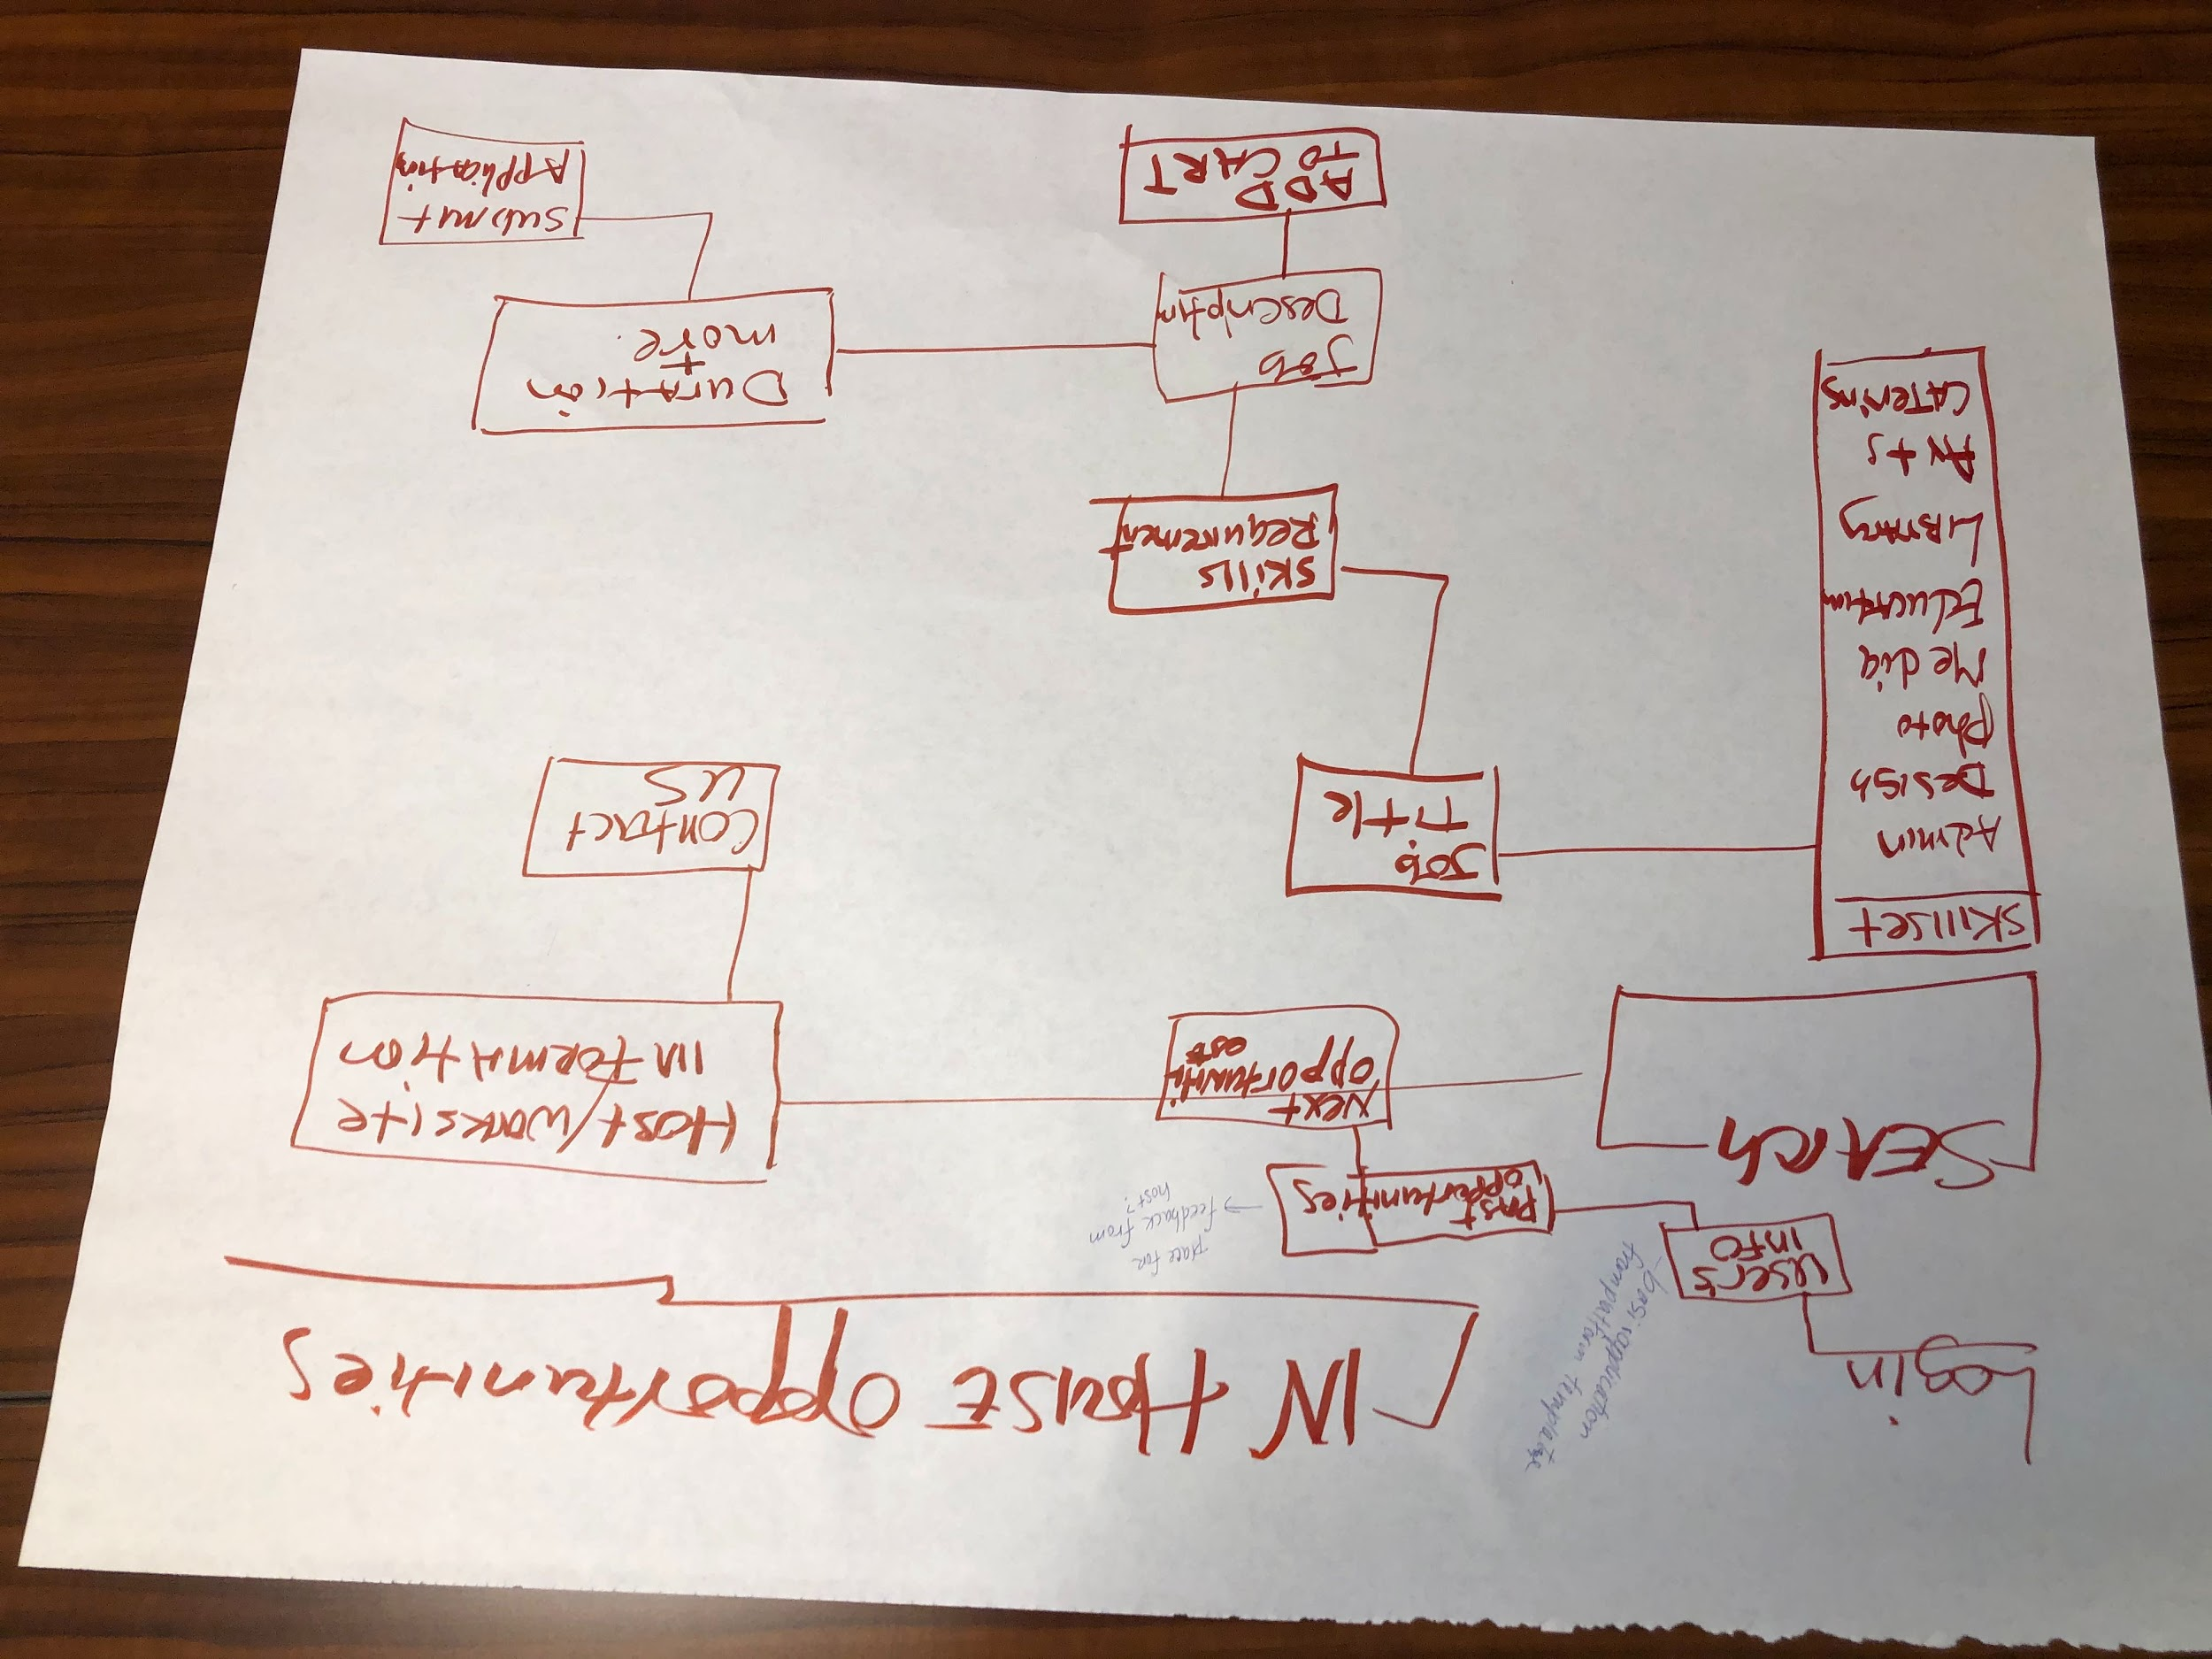 IN HOUSE Opportunities
Login
User's
INFO
- basic application
from putform template
Past
opportunities
place for
→ feedback from
host?
SEARCH
Next
opportuniti
es
Host/worksite
INFORMATION
Contact
US
Skillset
Admin
Design
Photo
Media
Education
Library
Arts
Catering
Job
Title
Skills
Requirement
Job
Description
ADD
TO
CHART
Duration
+
more.
Submit
Application